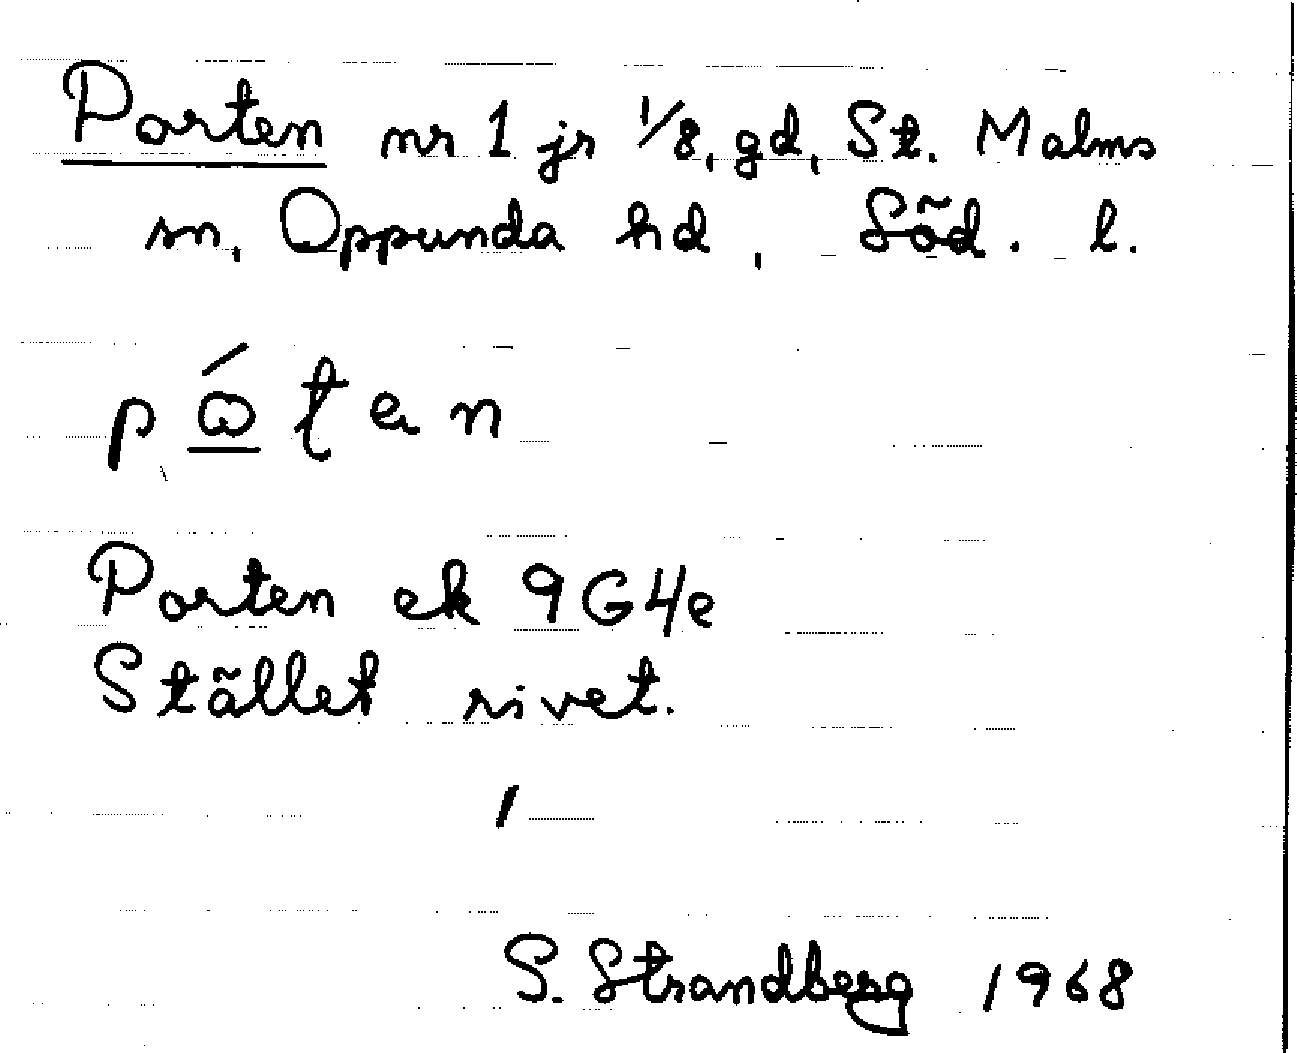 Porten nr 1 jr 1/8, gd, St. Malms
sn, Oppunda hd, Söd. l.
Porten ek 9G4e
Stället rivet.
S. Strandberg 1968